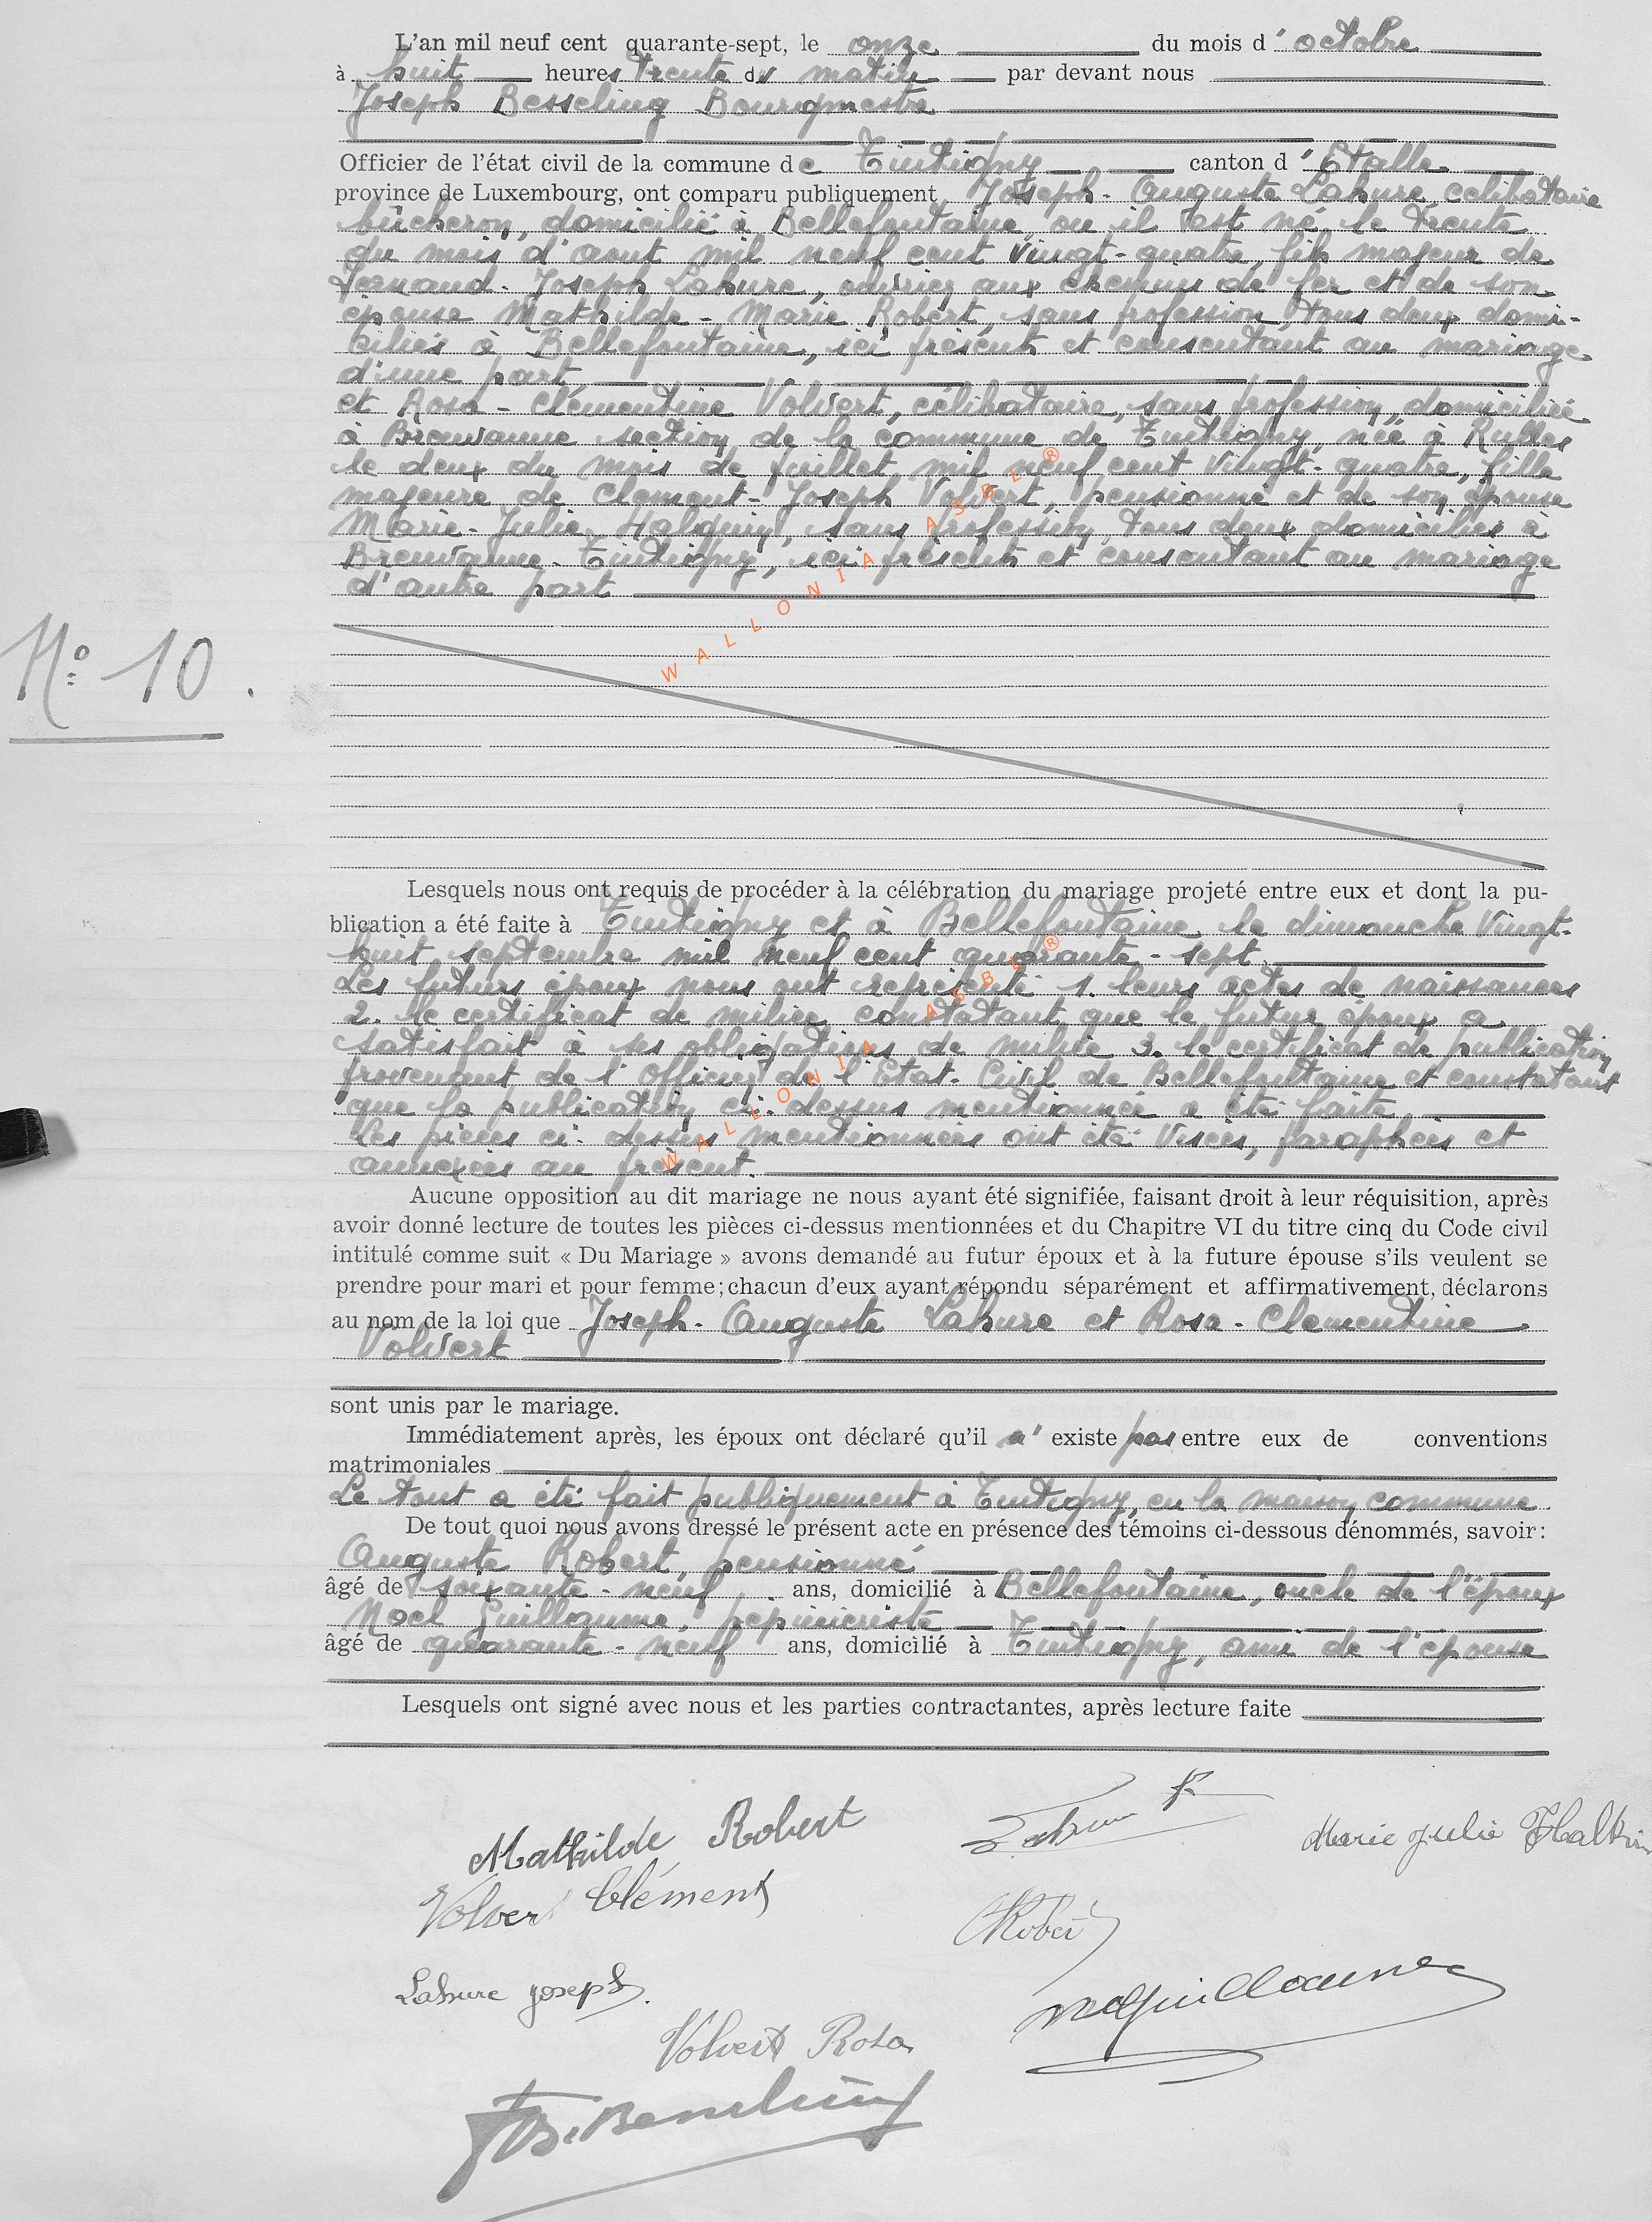 L'an mil neuf cent quarante-sept, le onze du mois d'octobre
à huit heures trente du matin par devant nous
Joseph Besseling Bourgmestre
Officier de l'état civil de la commune de Tintigny canton d'Etalle
province de Luxembourg, ont comparu publiquement Joseph-Auguste Lahure, celibataire
bûcheron, domicilié à Bellefontaine, ou il est né le trente
du mois d'aout mil neuf cent vingt-quatre, fils majeur de
Fernand-Joseph Lahure, ouvrier aux chemins de fer et de son
épouse Mathilde-Marie Robert, sans profession, tous deux domi-
ciliés à Bellefontaine, ici présents et consentant au mariage
d'une part
et Rosa-Clémentine Volvert, célibataire, sans profession, domiciliée
à Breuvanne section de la commune de Tintigny, née à Rulles
le deux du mois de juillet mil neuf cent vingt-quatre, fille
majeure de Clement-Joseph Volvert, pensionné et de son épouse
Marie-Julie Halquin, sans profession, tous deux domiciliés à
Breuvanne-Tintigny, ici présents et consentant au mariage
d'autre part
No 10.
WALLONIA ASBL ®
Lesquels nous ont requis de procéder à la célébration du mariage projeté entre eux et dont la pu-
blication a été faite à Tintigny et à Bellefontaine le dimanche vingt-
huit septembre mil neuf cent quarante-sept.
Les futurs époux nous ont représenté 1. leurs actes de naissances
2. le certificat de milice constatant que le futur époux a
satisfait à ses obligations de milice 3. le certificat de publication
provenant de l'Officier de l'Etat-Civil de Bellefontaine et constatant
que la publication ci-dessus mentionnée a été faite
Les pièces ci-dessus mentionnées ont été visées, paraphées et
annexées au présent.
WALLONIA ASBL ®
Aucune opposition au dit mariage ne nous ayant été signifiée, faisant droit à leur réquisition, après
avoir donné lecture de toutes les pièces ci-dessus mentionnées et du Chapitre VI du titre cinq du Code civil
intitulé comme suit « Du Mariage » avons demandé au futur époux et à la future épouse s'ils veulent se
prendre pour mari et pour femme; chacun d'eux ayant répondu séparément et affirmativement, déclarons
au nom de la loi que Joseph-Auguste Lahure et Rosa-Clementine
Volvert
sont unis par le mariage.
Immédiatement après, les époux ont déclaré qu'il n'existe pas entre eux de conventions
matrimoniales
Le tout a été fait publiquement à Tintigny, en la maison commune.
De tout quoi nous avons dressé le présent acte en présence des témoins ci-dessous dénommés, savoir:
Auguste Robert, pensionné
âgé de soixante-neuf ans, domicilié à Bellefontaine, oncle de l'époux
Noel Guillaume, pepinieriste
âgé de quarante-neuf ans, domicilié à Tintigny, ami de l'épouse
Lesquels ont signé avec nous et les parties contractantes, après lecture faite
Mathilde Robert
Lahure F
Marie Julie Halkin
Volvert Clément
Robert
Lahure Joseph.
NGuillaume
Volvert Rosa
Jos. Besseling